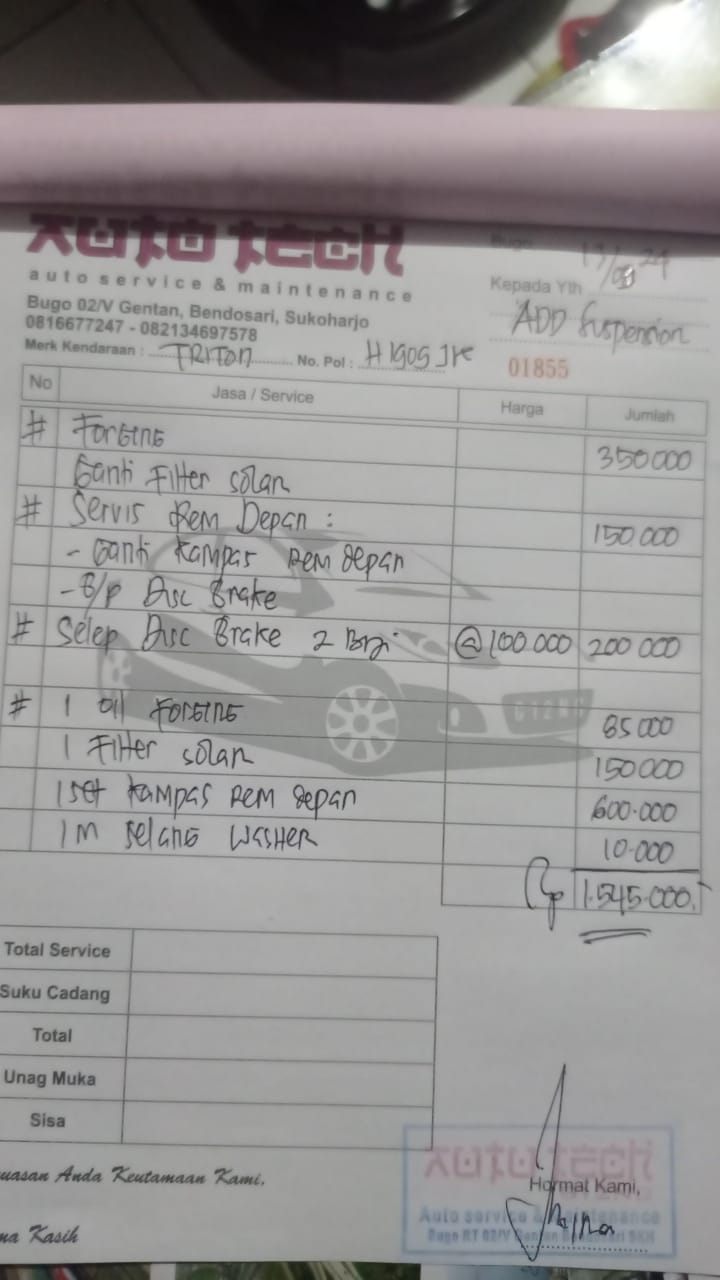 auto tech
auto service & maintenance
Bugo 02/V Gentan, Bendosari, Sukoharjo
0816677247 - 082134697578
Merk Kendaraan : TRITON No. Pol : H 1909
Bugo, 13/08 24
Kepada Yth
ADD Suspension
01855
No Jasa / Service Harga Jumlah
# Forsing 350000
Ganti Filter solar
# Servis Rem Depan : 150.000
- Ganti kampas rem depan
- B/P Disc Brake
# Selep Disc Brake 2 Biji @100.000 200 000
# 1 Oil Forsing 85000
1 Filter solar 150000
1 set kampas rem depan 600.000
1 M selang washer 10.000
Rp 1.545.000,-
Total Service
Suku Cadang
Total
Unag Muka
Sisa
uasan Anda Keutamaan Kami,
na Kasih
auto tech
Hormat Kami,
Auto service & maintenance
Bugo RT 02/V Gentan SKH